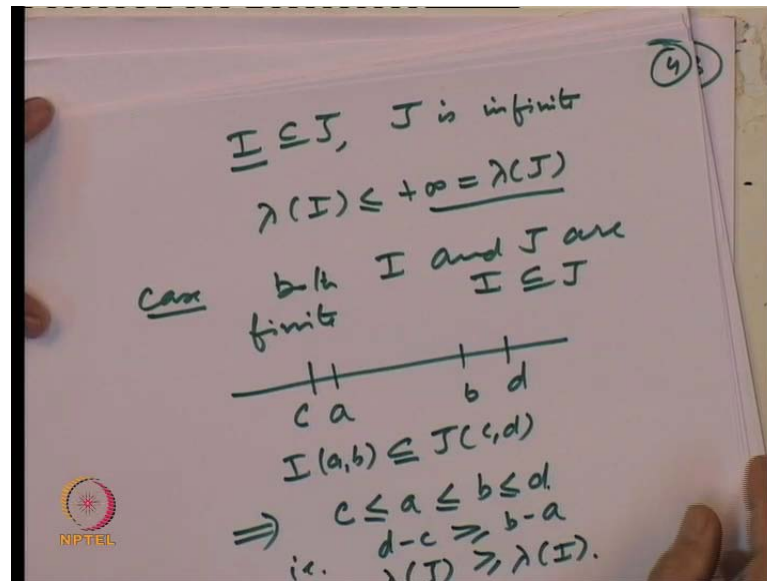 4
I ⊆ J, J is infinite
λ(I) ≤ +∞ = λ(J)
Case both I and J are
finite I ⊆ J
c a b d
I(a,b) ⊆ J(c,d)
⇒ c ≤ a ≤ b ≤ d.
d-c ≥ b-a
i.e. λ(J) ≥ λ(I).
NPTEL